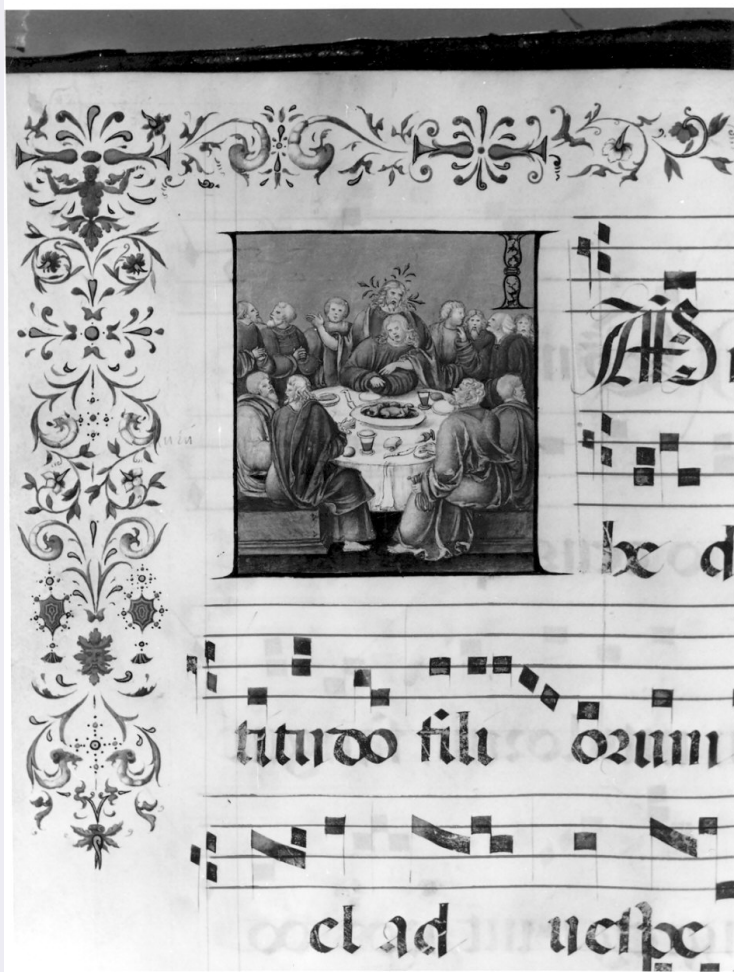 he d
titudo fili orum
el ad uespe